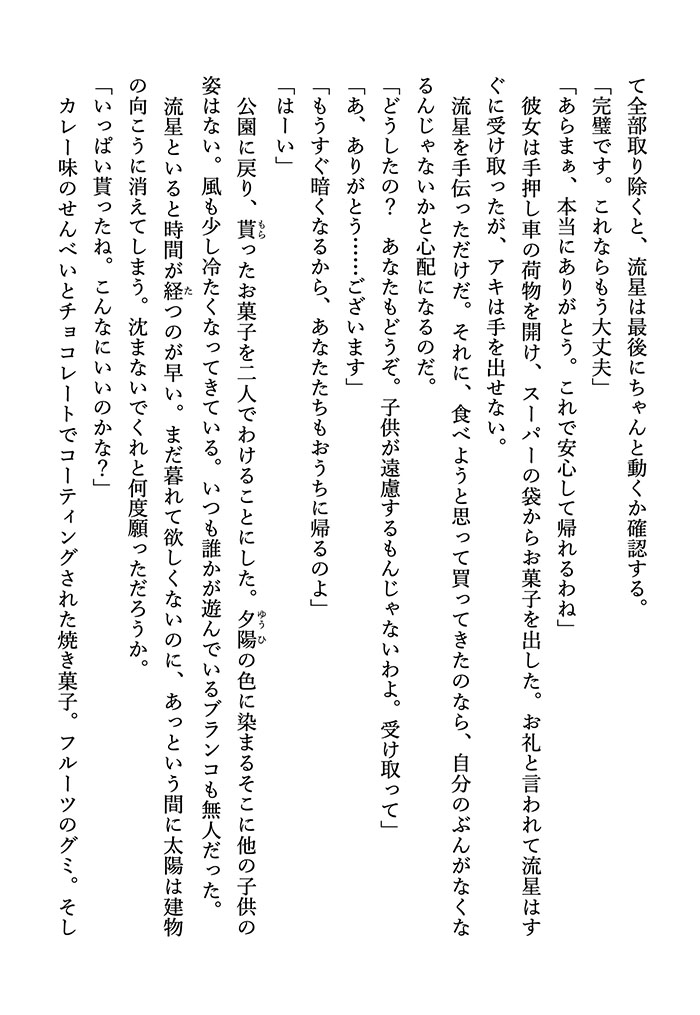 て全部取り除くと、流星は最後にちゃんと動くか確認する。
「完璧です。これならもう大丈夫」
「あらまぁ、本当にありがとう。これで安心して帰れるわね」
　彼女は手押し車の荷物を開け、スーパーの袋からお菓子を出した。お礼と言われて流星はす
ぐに受け取ったが、アキは手を出せない。
　流星を手伝っただけだ。それに、食べようと思って買ってきたのなら、自分のぶんがなくな
るんじゃないかと心配になるのだ。
「どうしたの？　あなたもどうぞ。子供が遠慮するもんじゃないわよ。受け取って」
「あ、ありがとう……ございます」
「もうすぐ暗くなるから、あなたたちもおうちに帰るのよ」
「はーい」
　公園に戻り、貰もらったお菓子を二人でわけることにした。夕陽ゆうひの色に染まるそこに他の子供の
姿はない。風も少し冷たくなってきている。いつも誰かが遊んでいるブランコも無人だった。
　流星といると時間が経たつのが早い。まだ暮れて欲しくないのに、あっという間に太陽は建物
の向こうに消えてしまう。沈まないでくれと何度願っただろうか。
「いっぱい貰ったね。こんなにいいのかな？」
　カレー味のせんべいとチョコレートでコーティングされた焼き菓子。フルーツのグミ。そし